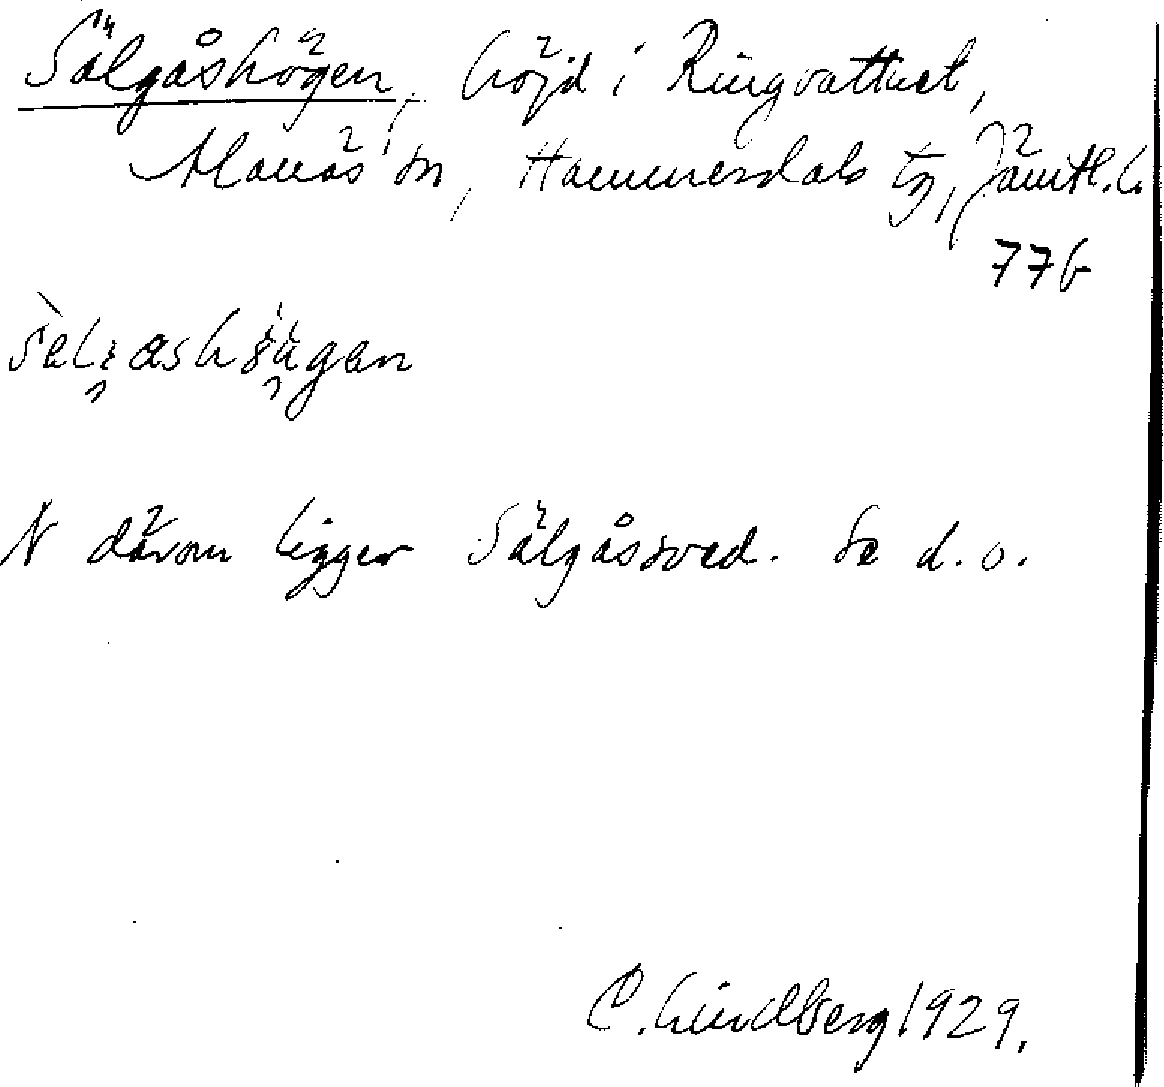 Sälgåshögen, höjd i Ringvattnet,
Alanäs sn, Hammerdals tg, Jämtl. l.
77b
N därom ligger Sälgåssved. Se d. o.
C. Lindberg 1929.